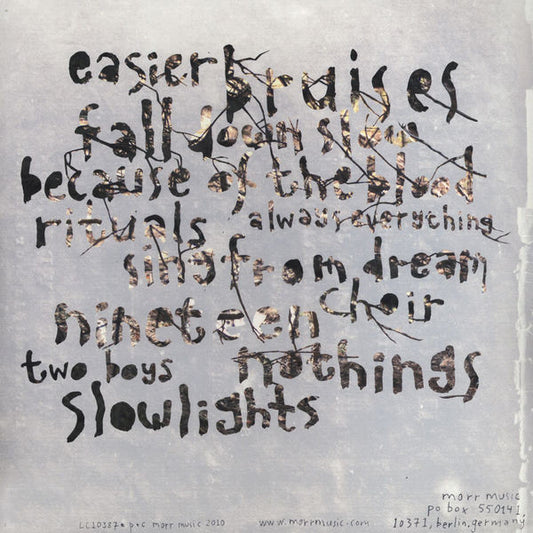 easier bruises
fall down slow
because of the blood
rituals always everything
sing from dream
nineteen choir
two boys nothings
slowlights
morr music
po box 550141,
LC10387 p+c morr music 2010 www.morrmusic.com 10371, berlin. germany